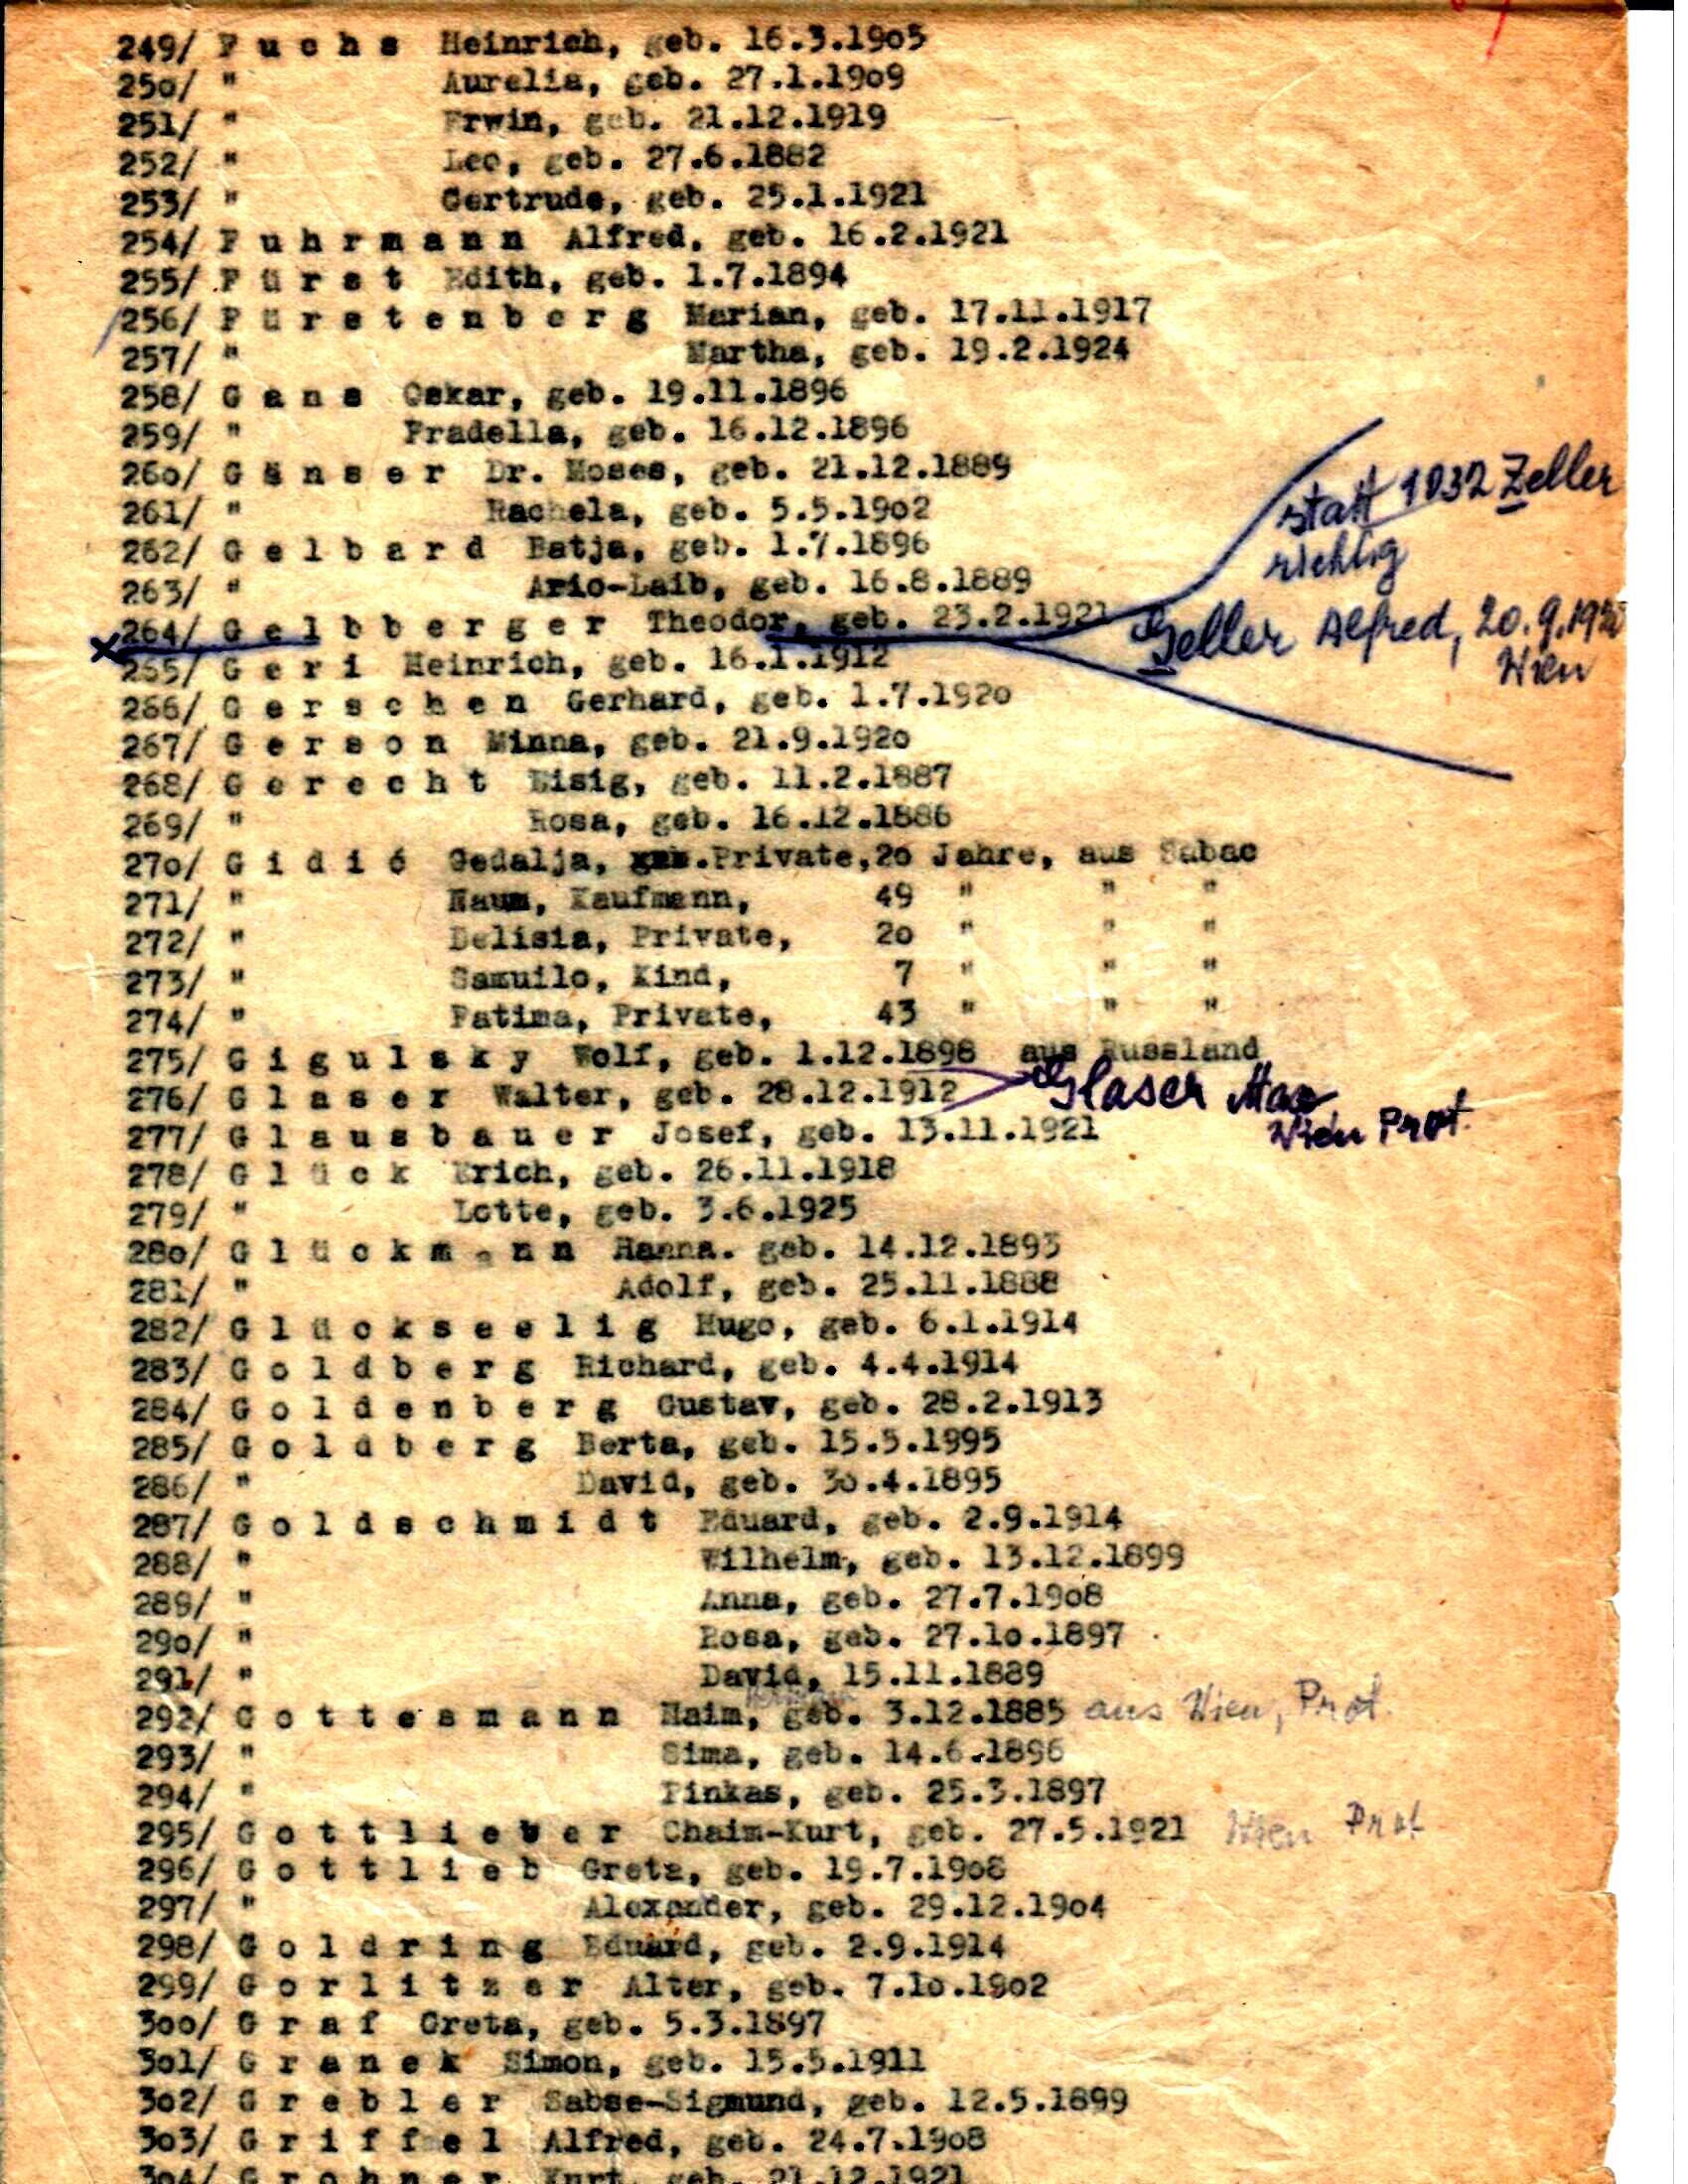 249/ F u c h s Heinrich, geb. 16.3.1905
250/ " Aurelia, geb. 27.1.1909
251/ " Erwin, geb. 21.12.1919
252/ " Leo, geb. 27.6.1882
253/ " Gertrude, geb. 25.1.1921
254/ F u h r m a n n Alfred, geb. 16.2.1921
255/ F ü r s t Edith, geb. 1.7.1894
256/ F ü r s t e n b e r g Marian, geb. 17.11.1917
257/ " Martha, geb. 19.2.1924
258/ G a n s Oskar, geb. 19.11.1896
259/ " Fradella, geb. 16.12.1896
260/ G ä n s e r Dr. Moses, geb. 21.12.1889
statt 1032 Zeller
261/ " Rachela, geb. 5.5.1902
richtig
262/ G e l b a r d Batja, geb. 1.7.1896
263/ " Ario-Laib, geb. 16.8.1889
264/ G e l b b e r g e r Theodor, geb. 23.2.1921
Geller Alfred, 20.9.
Wien
265/ G e r i Heinrich, geb. 16.1.1912
266/ G e r s c h e n Gerhard, geb. 1.7.1920
267/ G e r s o n Minna, geb. 21.9.1920
268/ G e r e c h t Eisig, geb. 11.2.1887
269/ " Rosa, geb. 16.12.1886
270/ G i d i ć Gedalja, Private,20 Jahre, aus Sabac
271/ " Naum, Kaufmann, 49 " " "
272/ " Delisia, Private, 20 " " "
273/ " Samuilo, Kind, 7 " " "
274/ " Fatima, Private, 43 " " "
275/ G i g u l s k y Wolf, geb. 1.12.1898 aus Russland
276/ G l a s e r Walter, geb. 28.12.1912
Glaser Max
Wien Prot.
277/ G l a u s b a u e r Josef, geb. 13.11.1921
278/ G l ü c k Erich, geb. 26.11.1918
279/ " Lotte, geb. 3.6.1925
280/ G l ü c k m a n n Hanna. geb. 14.12.1893
281/ " Adolf, geb. 25.11.1888
282/ G l ü c k s e e l i g Hugo, geb. 6.1.1914
283/ G o l d b e r g Richard, geb. 4.4.1914
284/ G o l d e n b e r g Gustav, geb. 28.2.1913
285/ G o l d b e r g Berta, geb. 15.5.1995
286/ " David, geb. 30.4.1895
287/ G o l d s c h m i d t Eduard, geb. 2.9.1914
288/ " Wilhelm, geb. 13.12.1899
289/ " Anna, geb. 27.7.1908
290/ " Rosa, geb. 27.10.1897
291/ " David, 15.11.1889
292/ G o t t e s m a n n Haim, geb. 3.12.1885 aus Wien, Prot.
293/ " Sima, geb. 14.6.1896
294/ " Pinkas, geb. 25.3.1897
295/ G o t t l i e b e r Chaim-Kurt, geb. 27.5.1921 Wien Prot
296/ G o t t l i e b Greta, geb. 19.7.1908
297/ " Alexander, geb. 29.12.1904
298/ G o l d r i n g Eduard, geb. 2.9.1914
299/ G o r l i t z e r Alter, geb. 7.10.1902
300/ G r a f Greta, geb. 5.3.1897
301/ G r a n e k Simon, geb. 15.5.1911
302/ G r e b l e r Sabse-Sigmund, geb. 12.5.1899
303/ G r i f f e l Alfred, geb. 24.7.1908
304/ G r o h n e r Kurt, geb. 21.12.1921